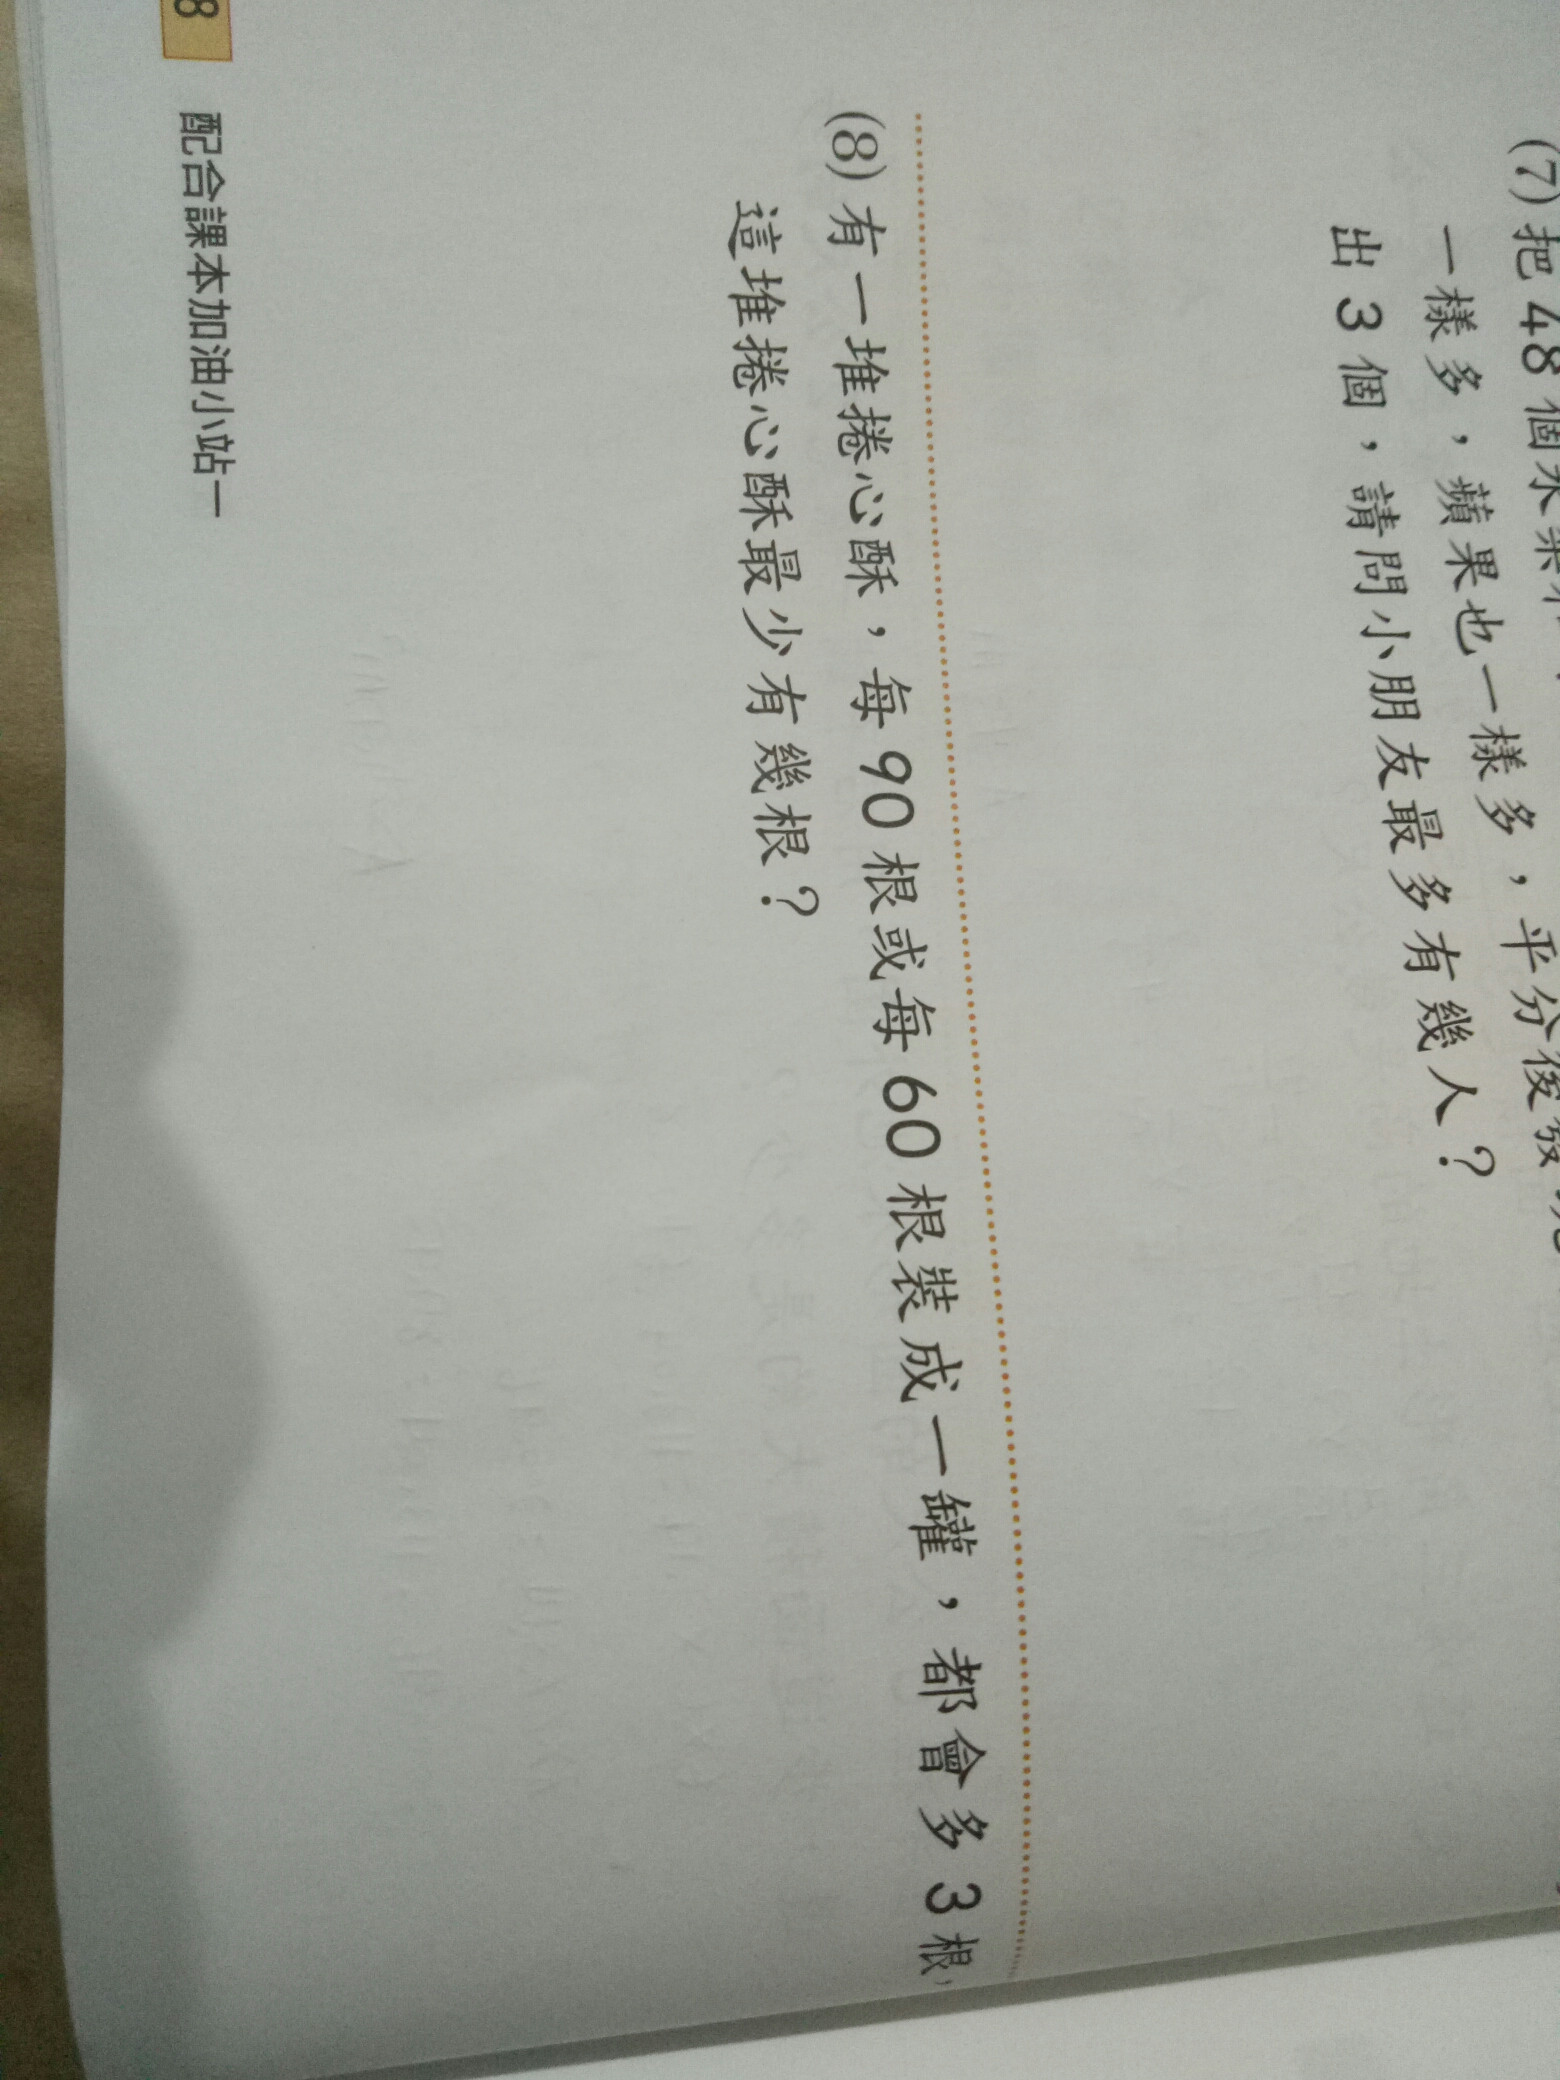 (7) 把 48 個
一樣多，蘋果也一樣多，平分後發
出 3 個，請問小朋友最多有幾人？
(8) 有一堆捲心酥，每 90 根或每 60 根裝成一罐，都會多 3 根，
這堆捲心酥最少有幾根？
8 配合課本加油小站一